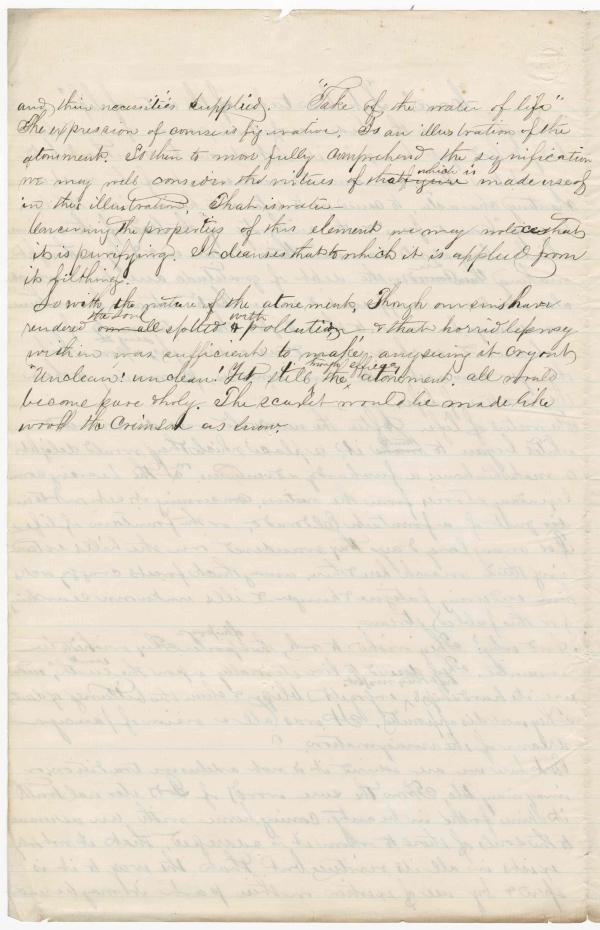 and their necessities supplied. "Take of the water of life"
The expression of course is figurative. Is an illustration of the
atonement. So then to more fully comprehend the signification
we may well consider the virtues of that figure which is made use of
in this illustration. That is water—
Concerning the properties of this element we may notice that
it is purifying. It cleanses that to which it is applied from
its filthiness.
So with the nature of the atonement, Though our sins have
rendered the soul all spotted with pollution & that horrid leprosy
within was sufficient to make any being it cry out
"Unclean! unclean! Yet still through the efficacy atonement, all would
become pure & holy. The scarlet would be made like
wool the Crimson as snow.